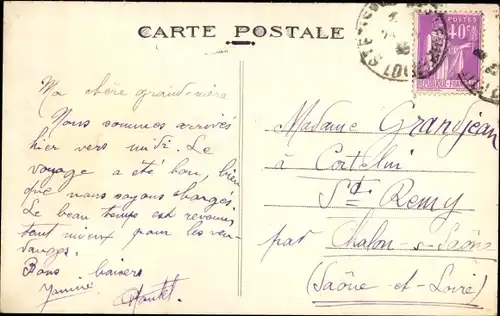 CARTE POSTALE
POSTES
40c
Ma chère grand'mère
Nous sommes arrivés
hier vers midi. Le
voyage a été bon, bien
que nous soyons chargés.
Le beau temps est revenu
tant mieux pour les ven-
danges.
Bons baisers
Janine
Madame Grandjean
à Cortelin
St Remy
par Chalon-s-Saône
(Saône-et-Loire)